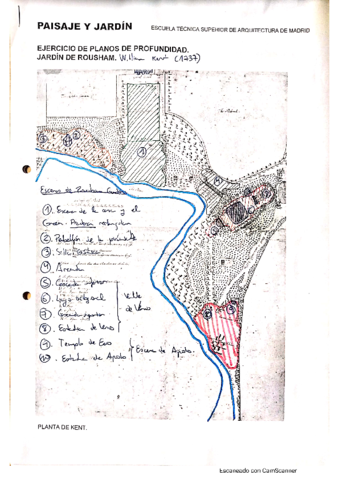 PAISAJE Y JARDÍN
ESCUELA TÉCNICA SUPERIOR DE ARQUITECTURA DE MADRID
EJERCICIO DE PLANOS DE PROFUNDIDAD.
JARDÍN DE ROUSHAM. William Kent (1737)
Escena de Rousham Garden
1. Escena de la y el
Green.
2. Pabellón de la
3.
4. Arcada
5. Cascada superior
6. octogonal
7. Cascada inferior
Valle de Venus
8. Estatua de Venus
9. Templo de Eco
10. Estatua de Apolo
Escena de Apolo.
PLANTA DE KENT.
Escaneado con CamScanner